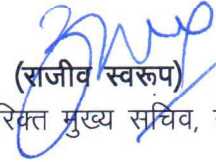 (राजीव स्वरूप)
मुख्य सचिव,